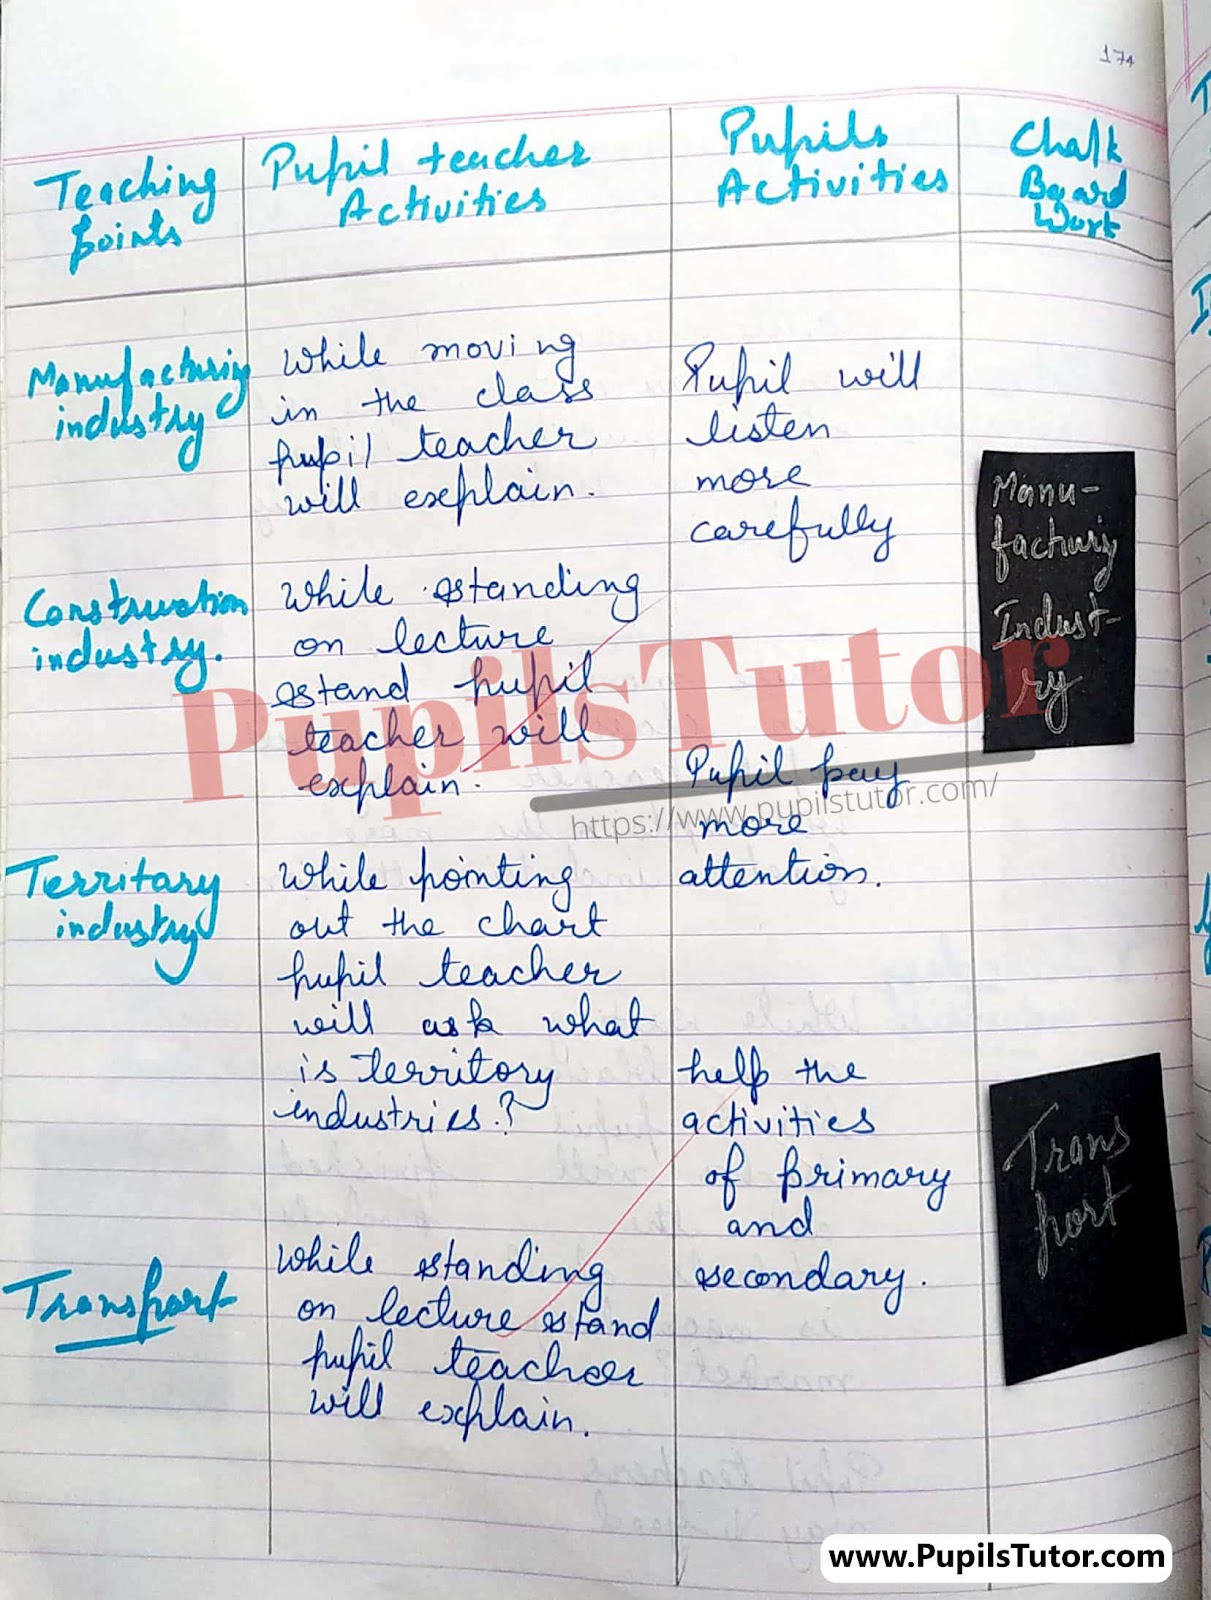 174
Teaching
points
Pupil teacher
Activities
Pupils
Activities
Chalk
Board
Work
Manufacturing
industry
While moving
in the class
pupil teacher
will explain.
Pupil will
listen
more
carefully
Manu-
facturing
Indust-
ry
Construction
industry.
While standing
on lecture
stand pupil
teacher will
explain.
Pupil pay
more
attention.
PupilsTutor
https://www.pupilstutor.com/
Territary
industry
While pointing
out the chart
pupil teacher
will ask what
is territory
industries?
help the
activities
of primary
and
secondary.
Transport
While standing
on lecture stand
pupil teacher
will explain.
Trans
port
www.PupilsTutor.com